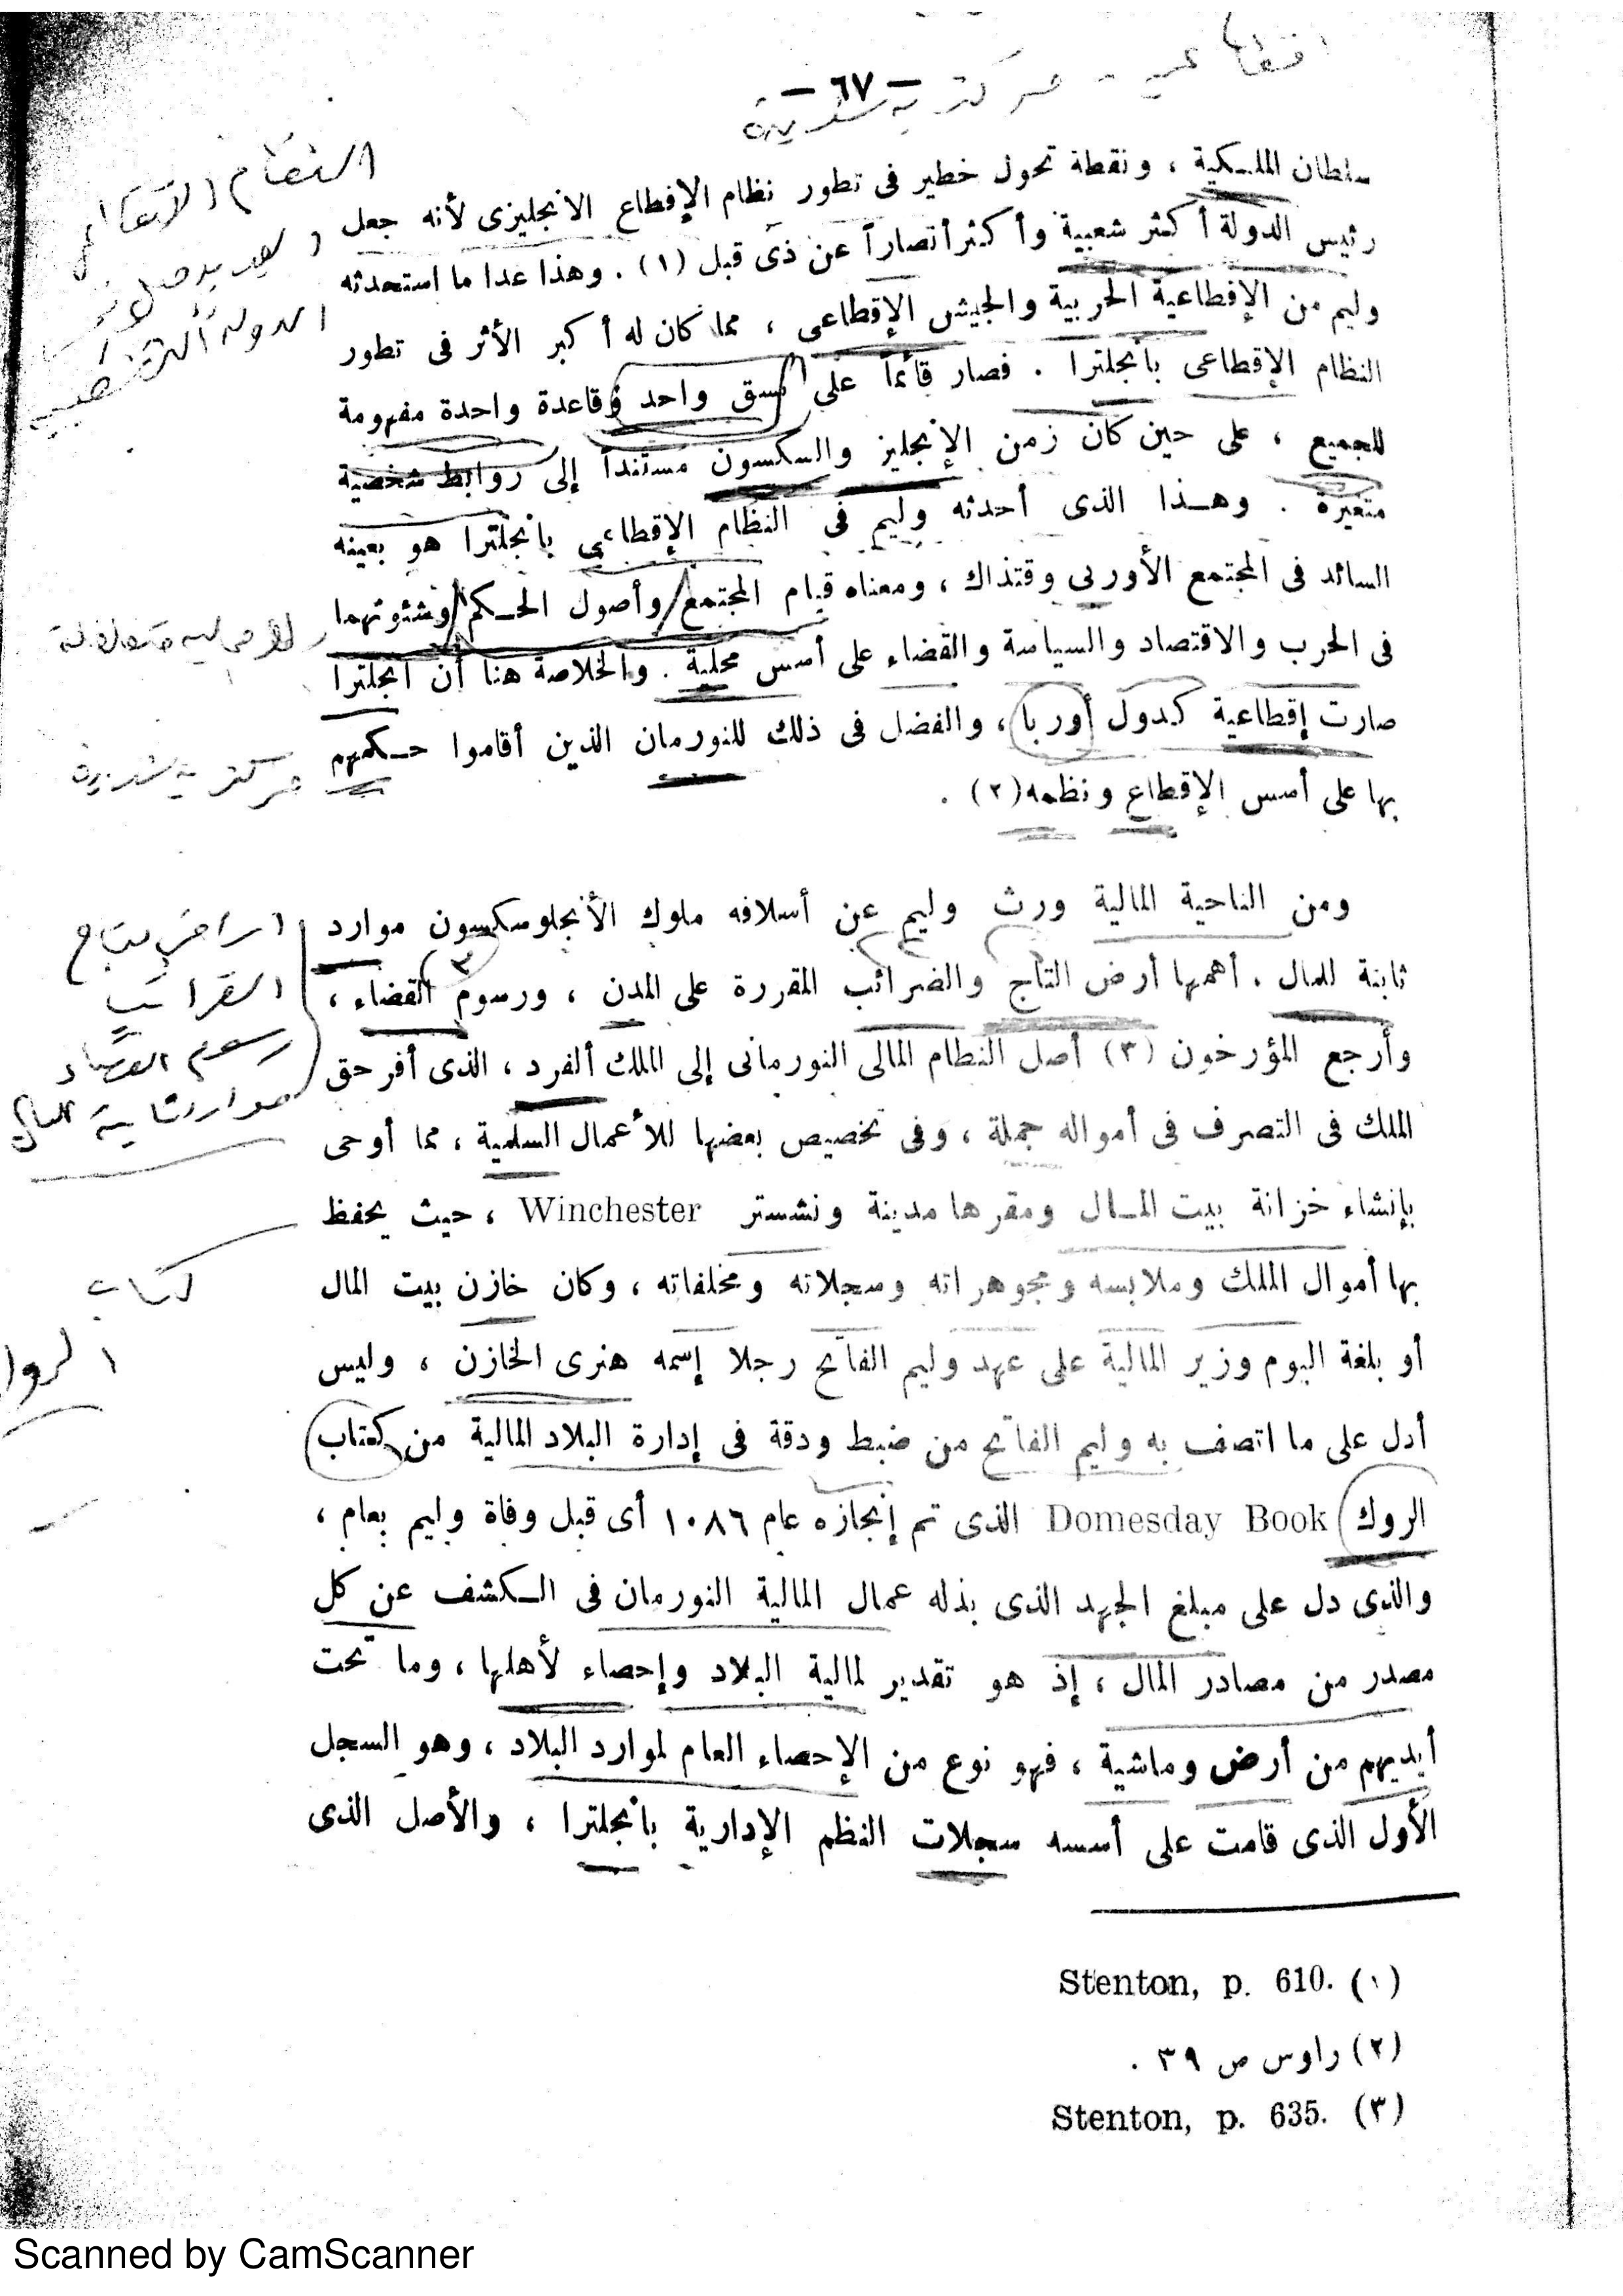 — ٦٧ —
سلطان الملـكية ، ونقطة تحول خطير فى تطور نظام الإقطاع الانجليزى لأنه جعل
رئيس الدولة أكثر شعبية وأكثر أنصاراً عن ذى قبل (١) . وهذا عدا ما استحدثه
وليم من الإقطاعية الحربية والجيش الإقطاعى ، مما كان له أكبر الأثر فى تطور
النظام الإقطاعى بانجلترا . فصار قائماً على نسق واحد وقاعدة واحدة مفهومة
للجميع ، على حين كان زمن الإنجليز والسكسون مستنداً إلى روابط شخصية
متغيرة . وهـذا الذى أحدثه وليم فى النظام الإقطاعى بانجلترا هو بعينه
السائد فى المجتمع الأوربى وقتذاك ، ومعناه قيام المجتمع وأصول الحـكم وشئونهما
فى الحرب والاقتصاد والسياسة والقضاء على أسس محلية . والخلاصة هنا أن انجلترا
صارت إقطاعية كدول أوربا ، والفضل فى ذلك للنورمان الذين أقاموا حـكمهم
بها على أسس الإقطاع ونظمه (٢) .
ومن الناحية المالية ورث وليم عن أسلافه ملوك الأنجلوسكسون موارد
ثابتة للمال . أهمها أرض التاج والضرائب المقررة على المدن ، ورسوم القضاء ،
وأرجع المؤرخون (٣) أصل النظام المالى النورمانى إلى الملك ألفرد ، الذى أقر حق
الملك فى التصرف فى أمواله جملة ، وفى تخصيص بعضها للأعمال السلمية ، مما أوحى
بإنشاء خزانة بيت المـال ومقرها مدينة ونشستر Winchester ، حيث يحفظ
بها أموال الملك وملابسه ومجوهراته وسجلاته ومخلفاته ، وكان خازن بيت المال
أو بلغة اليوم وزير المالية على عهد وليم الفاتح رجلا إسمه هنرى الخازن ، وليس
أدل على ما اتصف به وليم الفاتح من ضبط ودقة فى إدارة البلاد المالية من كتاب
الروك Domesday Book الذى تم إنجازه عام ١٠٨٦ أى قبل وفاة وليم بعام ،
والذى دل على مبلغ الجهد الذى بذله عمال المالية النورمان فى الـكشف عن كل
مصدر من مصادر المال ، إذ هو تقدير لمالية البلاد وإحصاء لأهلها ، وما تحت
أيديهم من أرض وماشية ، فهو نوع من الإحصاء العام لموارد البلاد ، وهو السجل
الأول الذى قامت على أسسه سجلات النظم الإدارية بانجلترا ، والأصل الذى
(١) Stenton, p. 610.
(٢) راوس ص ٣٩ .
(٣) Stenton, p. 635.
مركزية شديدة
النظام الاقطاعى
مركزية شديدة
اراضى التاج
الضرائب
رسوم القضاء
موارد ثابتة للمال
كتاب
الروك
Scanned by CamScanner